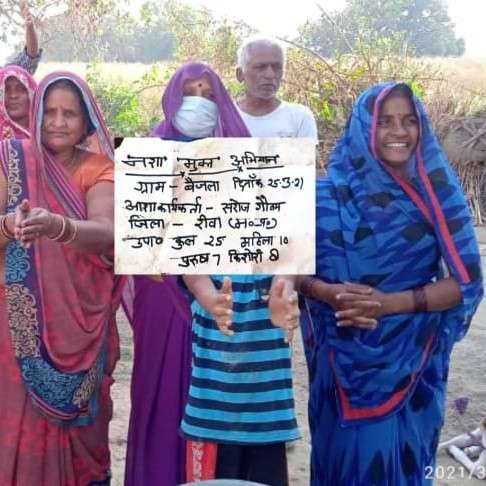 नशा मुक्त अभियान
ग्राम - बैजला दिनाँक 25-3-21
आशा कार्यकर्ता - सरोज गौतम
जिला - रीवा (म०प्र०)
उपा० कुल 25 महिला 10
पुरुष 7 किशोरी 8
2021/3